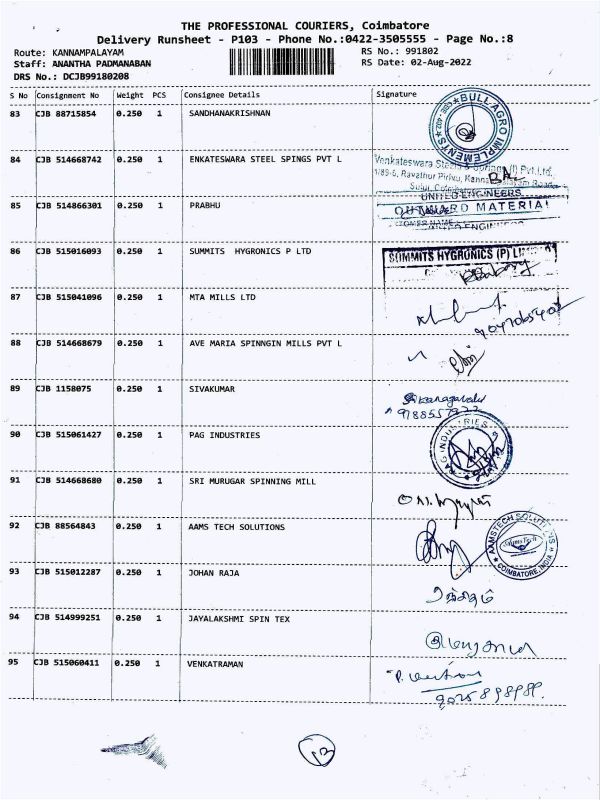 THE PROFESSIONAL COURIERS, Coimbatore
Delivery Runsheet - P103 - Phone No.:0422-3505555 - Page No.:8
Route: KANNAMPALAYAM RS No.: 991802
Staff: ANANTHA PADMANABAN RS Date: 02-Aug-2022
DRS No.: DCJB99180208
S No Consignment No Weight PCS Consignee Details Signature
83 CJB 88715854 0.250 1 SANDHANAKRISHNAN
BULL AGRO IMPLEMENTS
84 CJB 514668742 0.250 1 ENKATESWARA STEEL SPINGS PVT L
Venkateswara Steels & Springs (I) Pvt.Ltd.,
UNITED ENGINEERS
85 CJB 514866301 0.250 1 PRABHU
MATERIAL
86 CJB 515016093 0.250 1 SUMMITS HYGRONICS P LTD
SUMMITS HYGRONICS (P)
87 CJB 515041096 0.250 1 MTA MILLS LTD
88 CJB 514668679 0.250 1 AVE MARIA SPINNGIN MILLS PVT L
89 CJB 1158075 0.250 1 SIVAKUMAR
90 CJB 515061427 0.250 1 PAG INDUSTRIES
PAG INDUSTRIES
91 CJB 514668680 0.250 1 SRI MURUGAR SPINNING MILL
92 CJB 88564843 0.250 1 AAMS TECH SOLUTIONS
AAMSTECH SOLUTIONS
COIMBATORE, INDIA
93 CJB 515012287 0.250 1 JOHAN RAJA
94 CJB 514999251 0.250 1 JAYALAKSHMI SPIN TEX
95 CJB 515060411 0.250 1 VENKATRAMAN
13